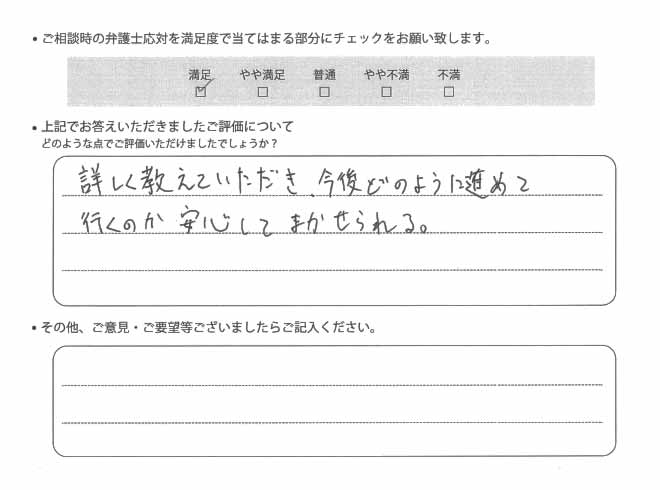 • ご相談時の弁護士応対を満足度で当てはまる部分にチェックをお願い致します。
満足 やや満足 普通 やや不満 不満
☑ □ □ □ □
• 上記でお答えいただきましたご評価について
どのような点でご評価いただけましたでしょうか？
詳しく教えていただき、今後どのように進めて
行くのか安心してまかせられる。
• その他、ご意見・ご要望等ございましたらご記入ください。